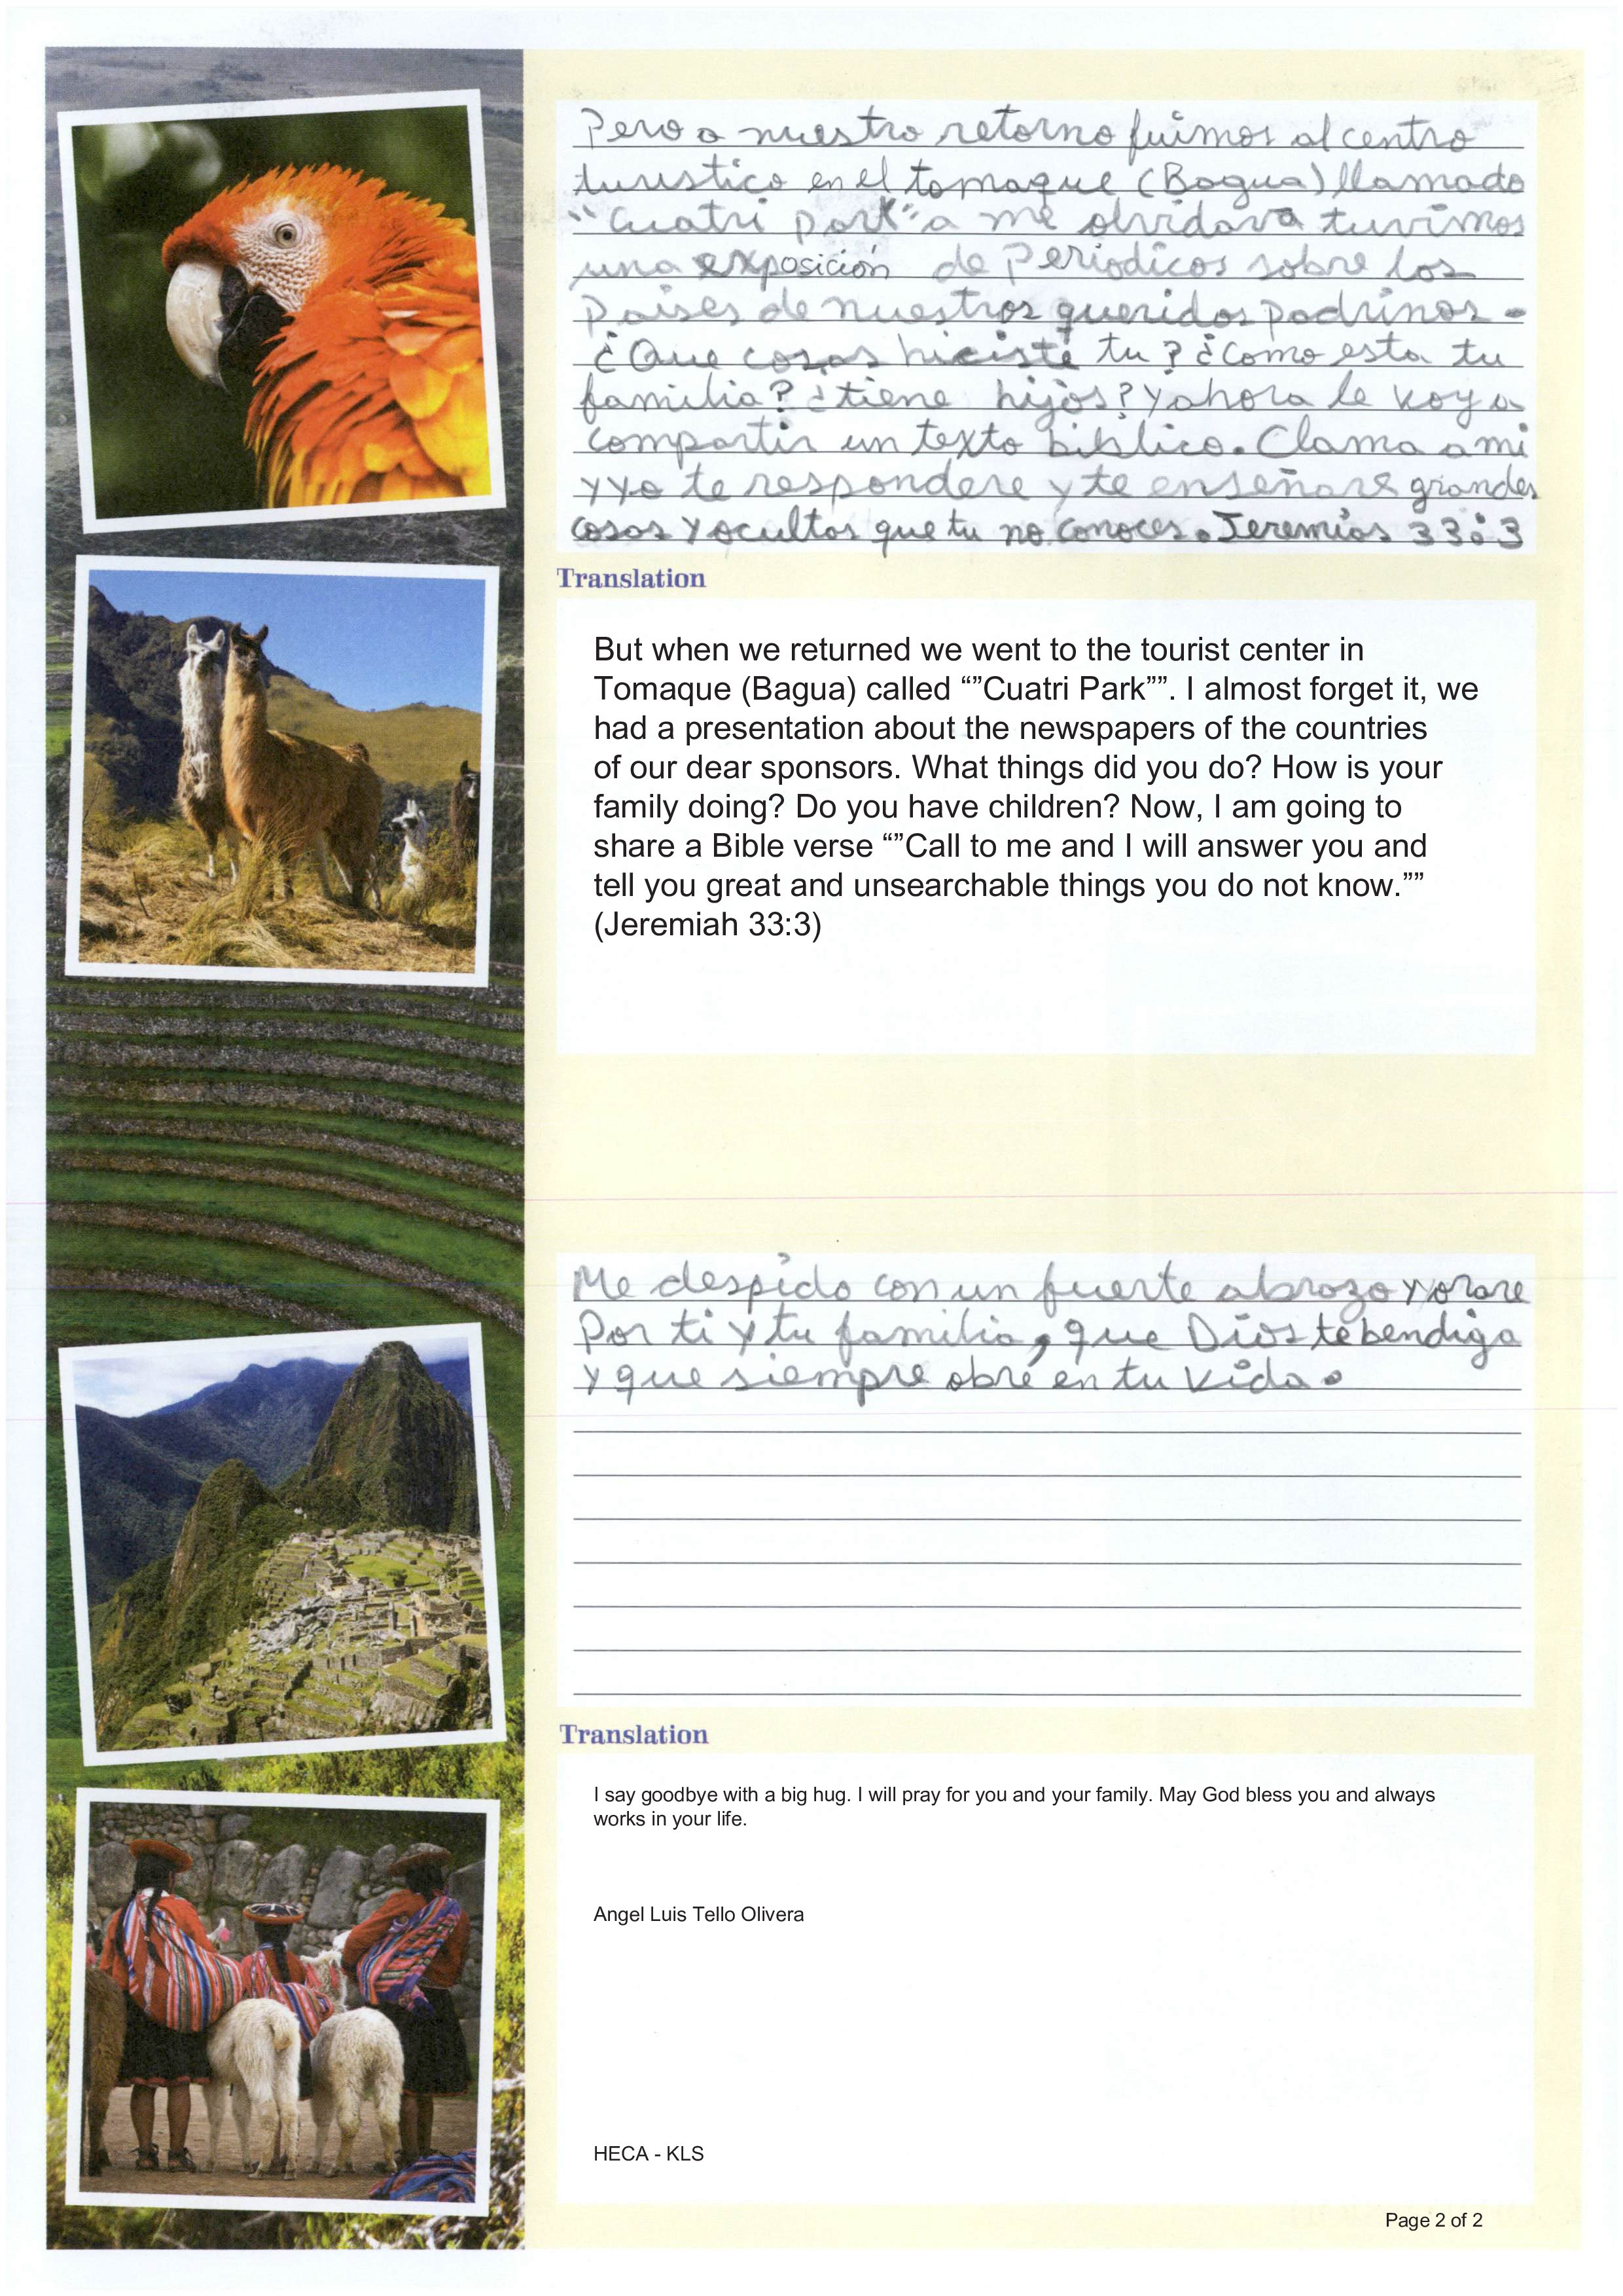 Pero a nuestro retorno fuimos al centro
turistico en el tomaque (Bagua) llamado
"Cuatri park" a me olvidava tuvimos
una exposición de Periodicos sobre los
Paises de nuestros queridos padrinos.
¿Que cosas hiciste tu? ¿Como esta tu
familia? ¿tiene hijos? Y ahora le voy a
compartir un texto biblico. Clama a mi
y yo te respondere y te enseñare grandes
cosas y ocultas que tu no conoces. Jeremias 33:3
Translation
But when we returned we went to the tourist center in
Tomaque (Bagua) called “”Cuatri Park””. I almost forget it, we
had a presentation about the newspapers of the countries
of our dear sponsors. What things did you do? How is your
family doing? Do you have children? Now, I am going to
share a Bible verse “”Call to me and I will answer you and
tell you great and unsearchable things you do not know.””
(Jeremiah 33:3)
Me despido con un fuerte abrazo y orare
Por ti y tu familia, que Dios te bendiga
y que siempre obre en tu vida.
Translation
I say goodbye with a big hug. I will pray for you and your family. May God bless you and always
works in your life.
Angel Luis Tello Olivera
HECA - KLS
Page 2 of 2